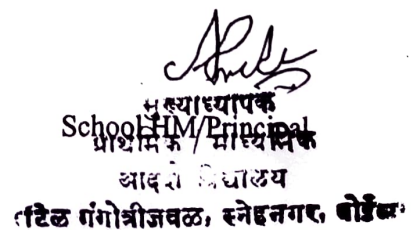 मुख्याध्यापक
School HM/Principal
प्राथमिक / माध्यमिक
आदर्श विद्यालय
गंगोत्रीजवळ, स्नेहनगर,